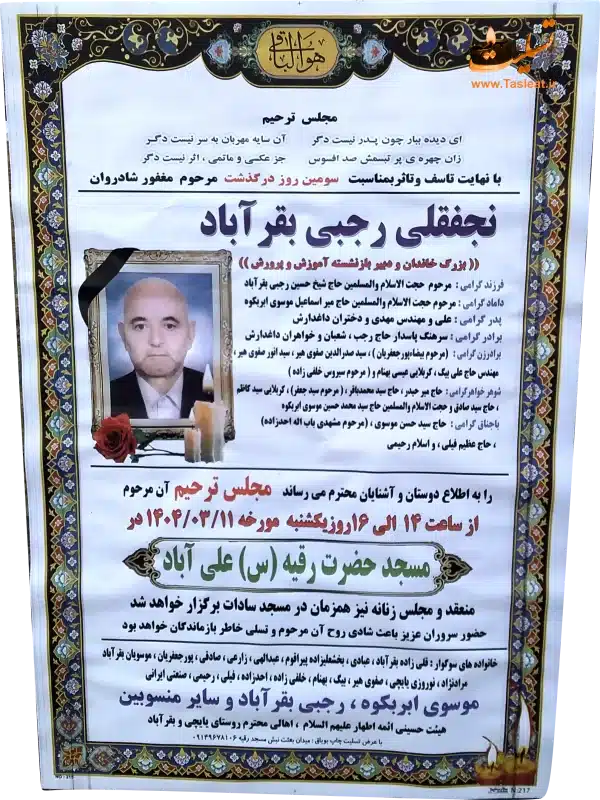 هو الباقی
تسلیت
www.Tasleat.ir
مجلس ترحیم
ای دیده ببار چون پدر نیست دگر آن سایه مهربان به سر نیست دگر
زان چهره ی پر تبسمش صد افسوس جز عکسی و ماتمی ، اثر نیست دگر
با نهایت تاسف وتاثربمناسبت سومین روز درگذشت مرحوم مغفور شادروان
نجفقلی رجبی بقرآباد
(( بزرگ خاندان و دبیر بازنشسته آموزش و پرورش ))
فرزند گرامی : مرحوم حجت الاسلام والمسلمین حاج شیخ حسین رجبی بقرآباد
داماد گرامی : مرحوم حجت الاسلام والمسلمین حاج میر اسماعیل موسوی ابربکوه
پدر گرامی : علی و مهندس مهدی و دختران داغدارش
برادر گرامی : سرهنگ پاسدار حاج رجب ، شعبان و خواهران داغدارش
برادرزن گرامی : (مرحوم بیضاپورجعفریان) ، سید صدرالدین صفوی هیر ، سید انور صفوی هیر ،
مهندس حاج علی بیک ، کربلایی عیسی بهنام و (مرحوم سیروس خلفی زاده )
شوهرخواهرگرامی : حاج میر حیدر ، حاج سید محمدباقر ، (مرحوم سید جعفر) ، کربلایی سید کاظم
، حاج سید صادق و حجت الاسلام والمسلمین حاج سید محمد حسین موسوی ابربکوه
باجناق گرامی : حاج سید حسن موسوی ، (مرحوم مشهدی باب اله احدزاده)
، حاج عظیم فیلی ، و اسلام رحیمی
را به اطلاع دوستان و آشنایان محترم می رساند مجلس ترحیم آن مرحوم
از ساعت ۱۴ الی ۱۶ روزیکشنبه مورخه ۱۴۰۴/۰۳/۱۱ در
مسجد حضرت رقیه (س) علی آباد
منعقد و مجلس زنانه نیز همزمان در مسجد سادات برگزار خواهد شد
حضور سروران عزیز باعث شادی روح آن مرحوم و تسلی خاطر بازماندگان خواهد بود
خانواده های سوگوار : قلی زاده بقرآباد ، عبادی ، بخشعلیزاده پیراقوم ، عبدالهی ، زارعی ، صادقی ، پورجعفریان ، موسویان بقرآباد
مرادنژاد ، نوروزی یایچی ، صفوی هیر ، بیک ، بهنام ، خلفی زاده ، احدزاده ، فیلی ، رحیمی ، صنعتی ایرانی
موسوی ابربکوه ، رجبی بقرآباد و سایر منسوبین
هیئت حسینی ائمه اطهار علیهم السلام ، اهالی محترم روستای یایچی و بقرآباد
با عرض تسلیت چاپ بوتاق : میدان بعثت نبش مسجد رقیه ۰۹۱۴۹۶۷۸۱۰۶
N:217